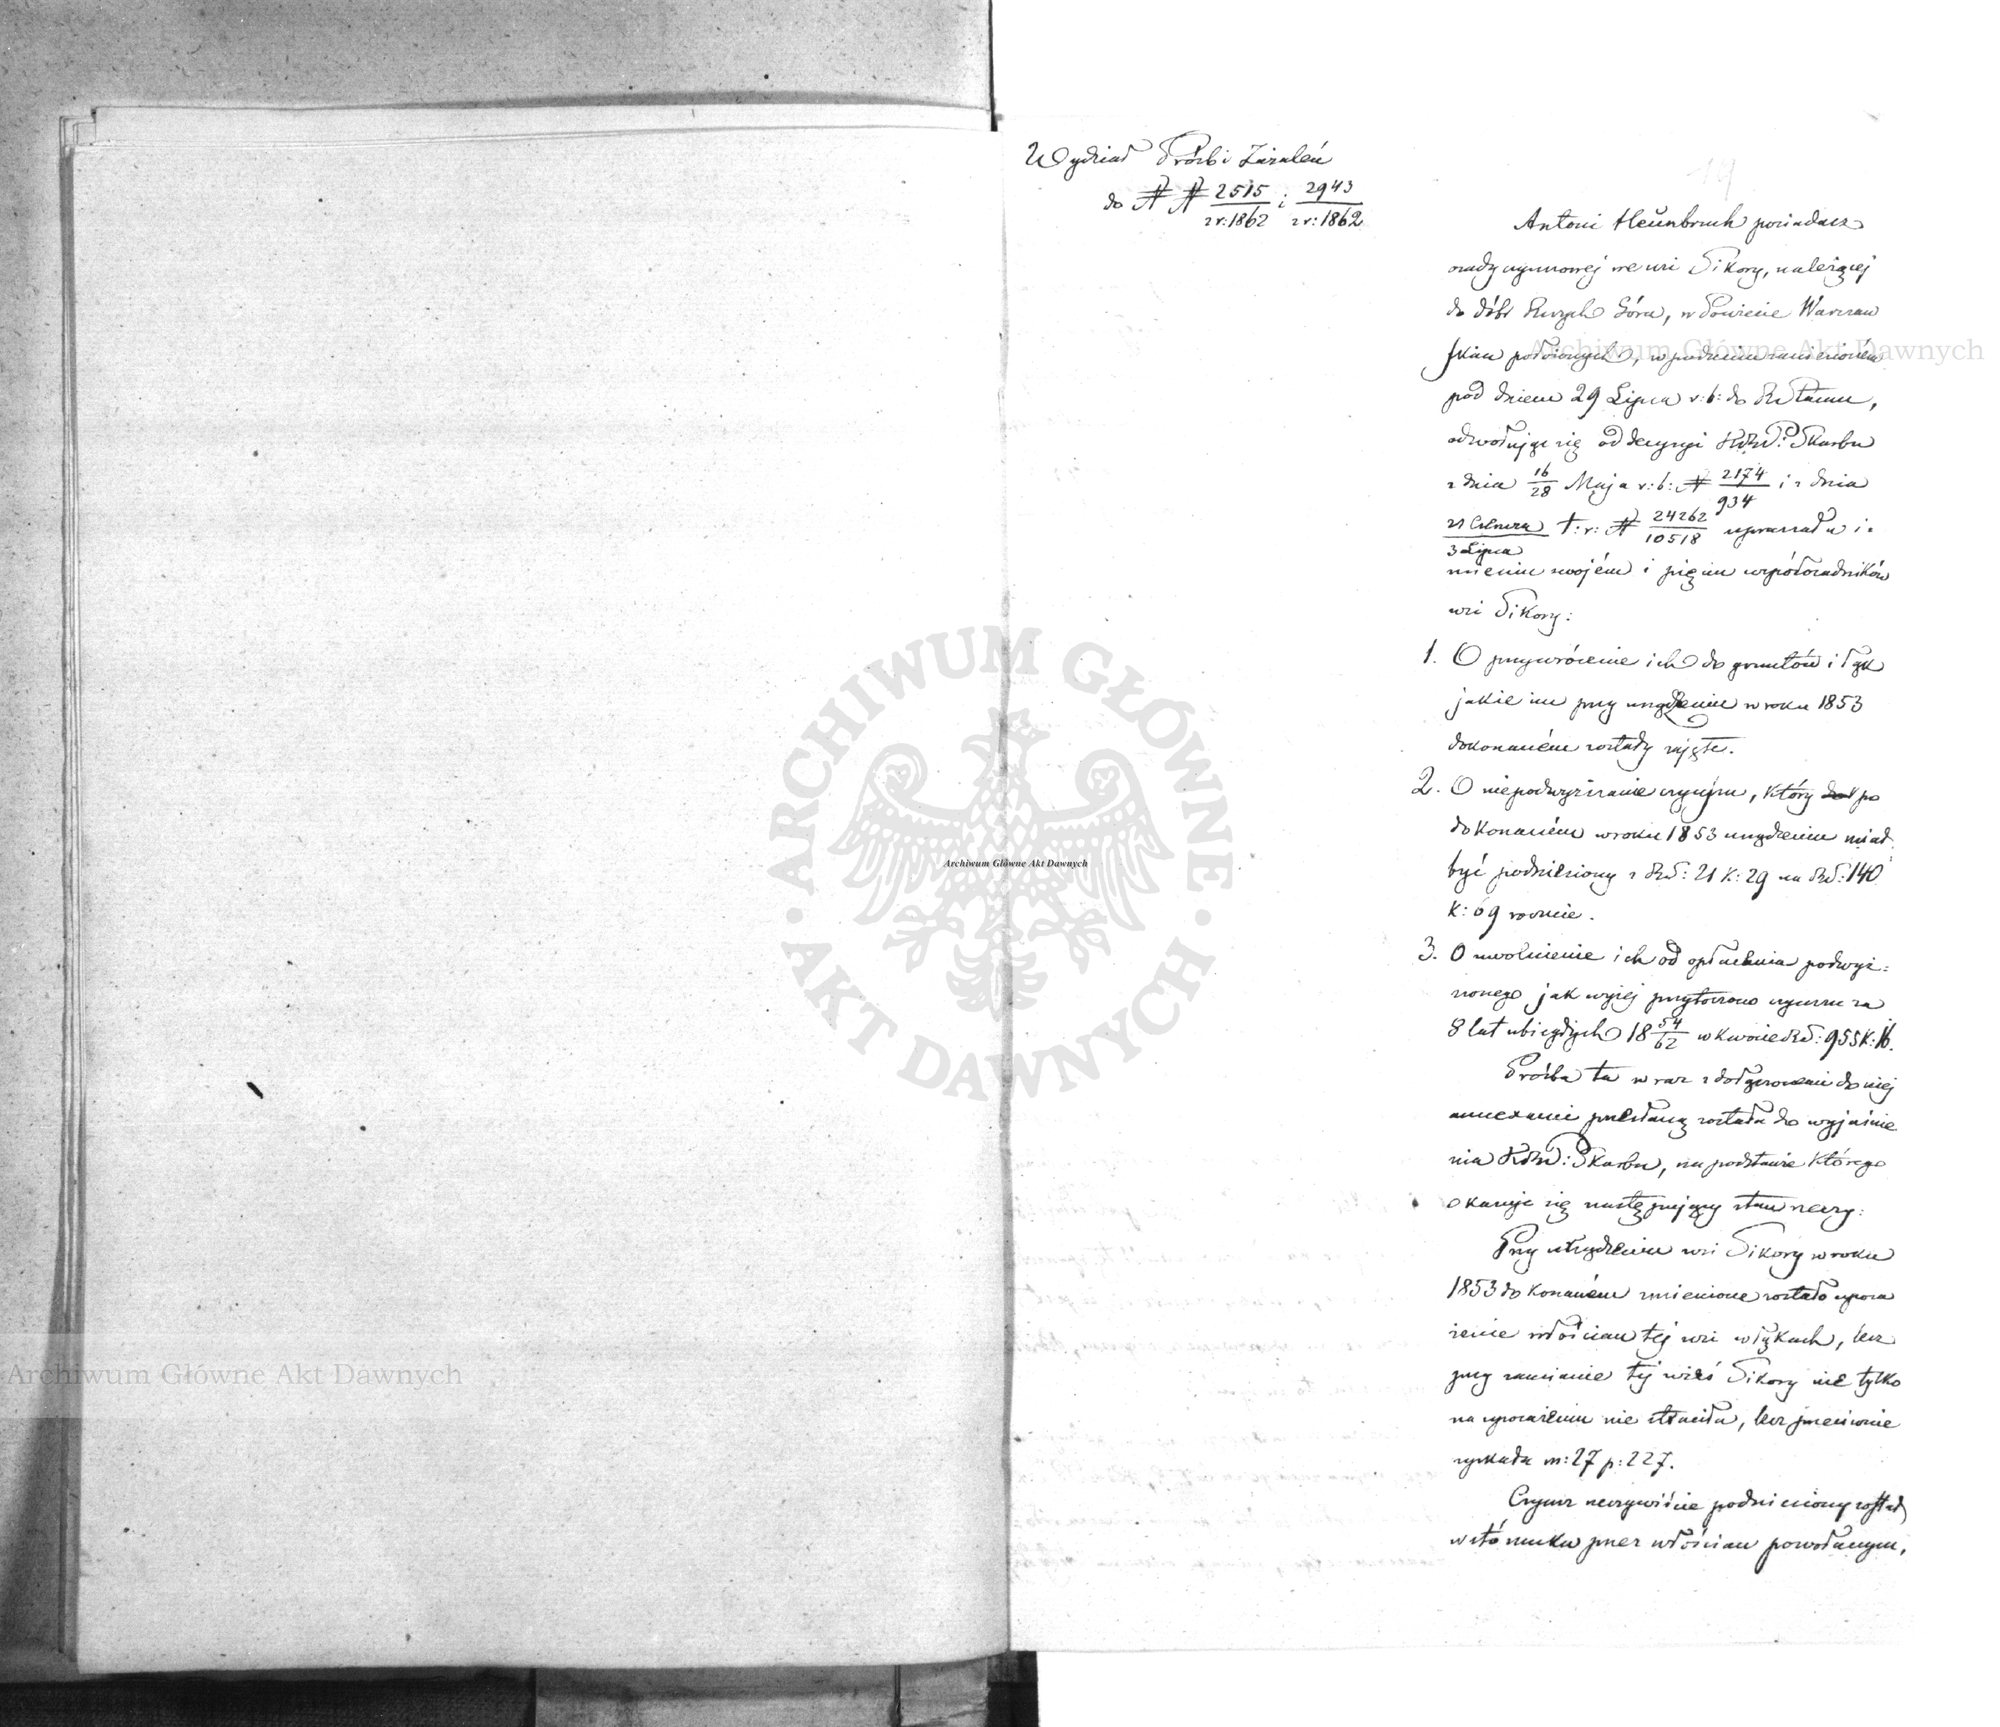 Wydział Próśb i Zażaleń
do NN 2515/z r: 1862 i 2943/z r: 1862
19
Antoni posiadacz
osady czynszowej we wsi Sikory, należącej
do dóbr Góra, w Powiecie Warszaw
skim położonych, w podaniu zaniesioném
pod dniem 29 Lipca r: b: do
odwołując się od decyzyi KRzP: i Skarbu
z dnia 16/28 Maja r: b: N 2174/934 i z dnia
21 Czerwca/3 Lipca t: r: N 24262/10518 upraszał w i=
mieniu swojém i pięciu współosadników
wsi Sikory:
1. O przywrócenie ich do gruntów i łąk
jakie im przy urządzeniu w roku 1853
dokonaném zostały zajęte.
2. O niepodwyższanie czynszu, który po
dokonaném w roku 1853 urządzeniu miał
być podniesiony z Rs: 21 k: 29 na Rs: 140
k: 69 rocznie.
3. O uwolnienie ich od opłacenia podwyż=
szonego jak wyżej przytoczono czynszu za
8 lat ubiegłych 18 54/62 w kwocie Rs: 955 k: 16.
Prośba ta wraz z dołączonemi do niej
annexami przesłaną została do wyjaśnie
nia KRzP: i Skarbu, na podstawie którego
okazuje się następujący stan rzeczy:
Przy urządzeniu wsi Sikory w roku
1853 dokonaném zmienione zostało uposa
żenie włościan tej wsi w łąkach, lecz
przy zamianie tej wieś Sikory nie tylko
na uposażeniu nie straciła, lecz przeciwnie
zyskała m: 27 p: 227.
Czynsz rzeczywiście podniesiony został
w stósunku przez włościan powołanym,
Archiwum Główne Akt Dawnych
Archiwum Główne Akt Dawnych
Archiwum Główne Akt Dawnych
ARCHIWUM GŁÓWNE
AKT DAWNYCH